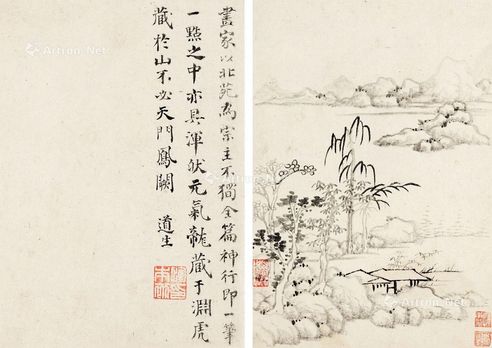 畫家以北苑為宗主不獨全篇神行即一筆
一點之中亦具渾狀元氣龍藏于淵虎
藏於山不必天門鳳闕
道生
Artron.Net
Artron.Net